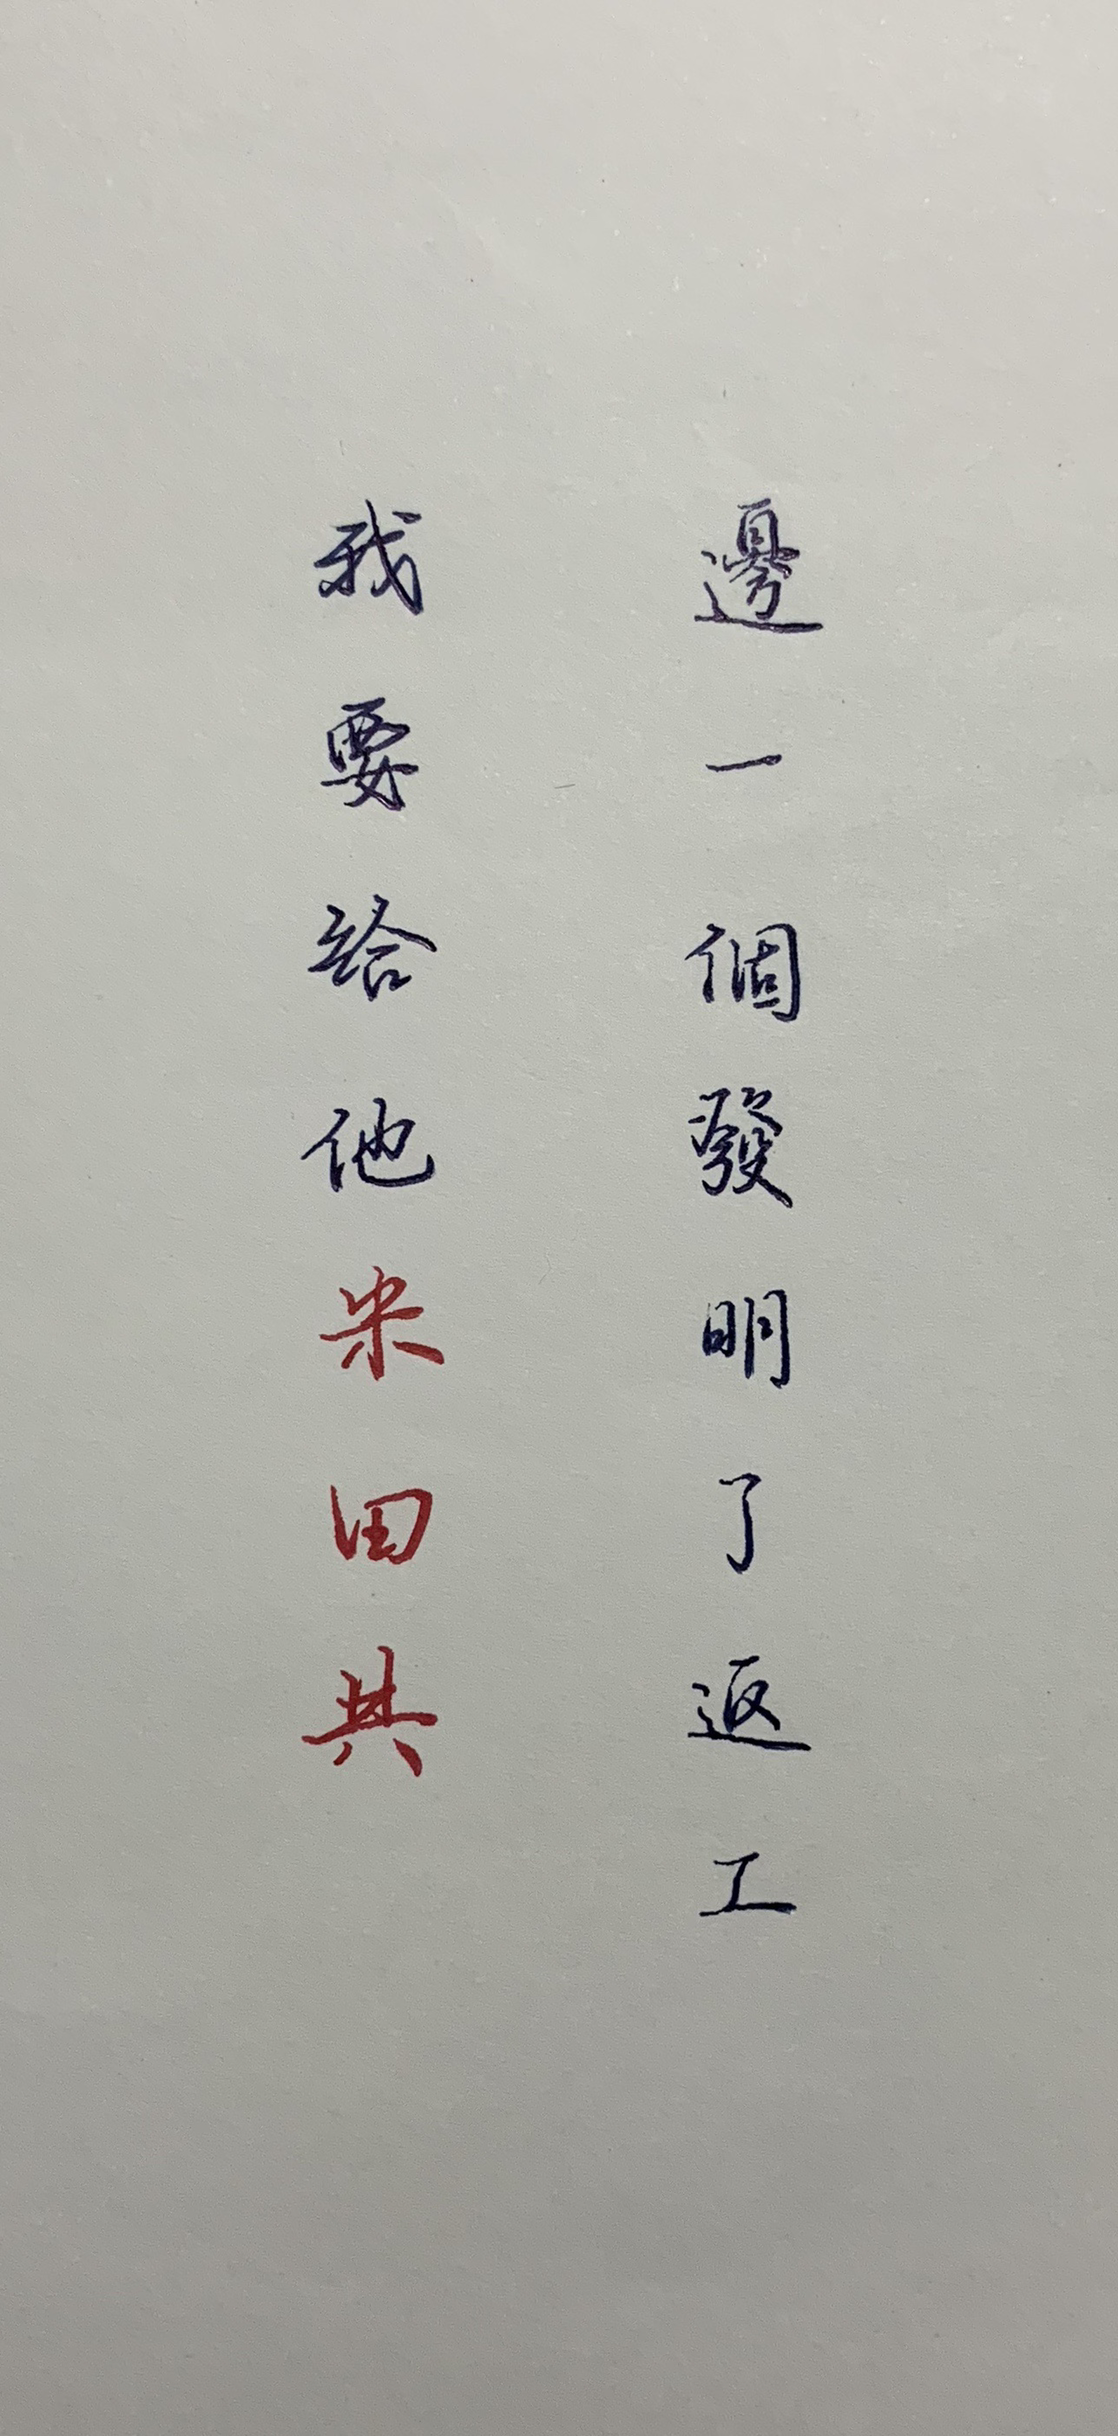 邊一個發明了返工
我要給他米田共